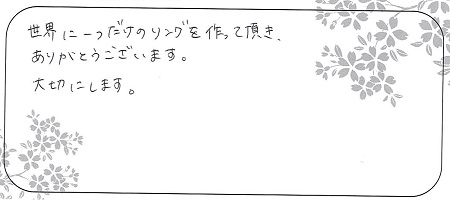 世界に一つだけのリングを作って頂き、
ありがとうございます。
大切にします。